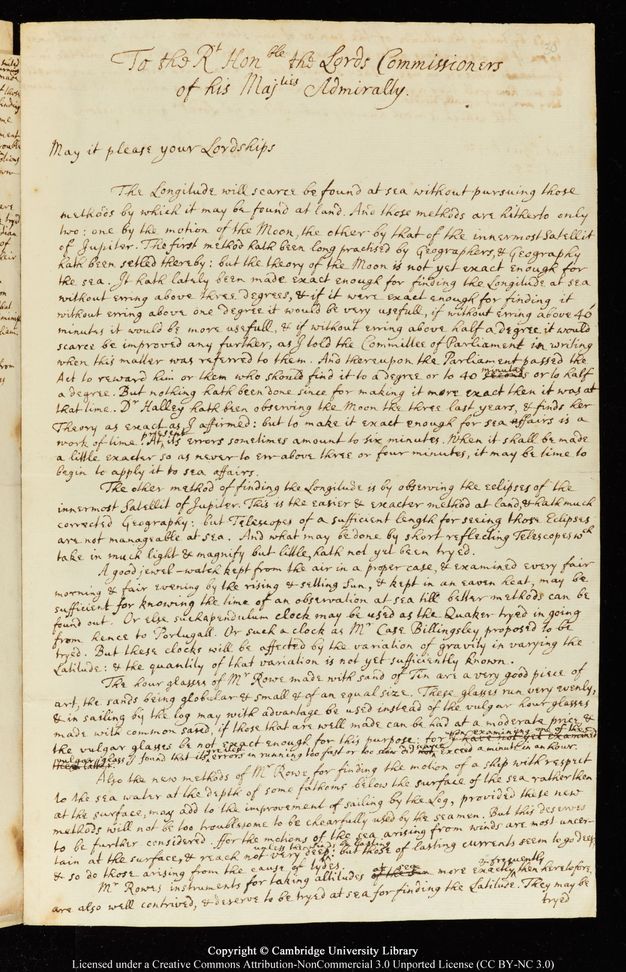 30
To the Rt Honble the Lords Commissioners
of his Majties Admiralty.
May it please your Lordships
The Longitude will scarce be found at sea without pursuing those
methods by which it may be found at land. And those methods are hitherto only
two: one by the motion of the Moon, the other by that of the innermost Satellit
of Jupiter. The first method hath been long practised by Geographers, & Geography
hath been setled thereby: but the theory of the Moon is not yet exact enough for
the sea. It hath lately been made exact enough for finding the Longitude at sea
without erring above three degrees, & if it were exact enough for finding it
without erring above one degree it would be very usefull, if without erring above 40
minutes it would be more usefull, & if without erring above half a degree it would
scarce be improved any further, as I told the Committee of Parliament in writing
when this matter was referred to them. And thereupon the Parliament passed the
Act to reward him or them who should find it to a degree or to 40 minutes or to half
a degree. But nothing hath been done since for making it more exact then it was at
that time. Dr Halley hath been observing the Moon the three last years, & finds her
Theory as exact as I affirmed: but to make it exact enough for sea affairs is a
work of time. At present its errors sometimes amount to six minutes. When it shall be made
a little exacter so as never to err above three or four minutes, it may be time to
begin to apply it to sea affairs.
The other method of finding the Longitude is by observing the eclipses of the
innermost Satellit of Jupiter. This is the easier & exacter method at land, & hath much
corrected Geography: but Telescopes of a sufficient length for seeing those Eclipses
are not manageable at sea. And what may be done by short reflecting Telescopes wch
take in much light & magnify but little, hath not yet been tryed.
A good jewel-watch kept from the air in a proper case, & examined every fair
morning & fair evening by the rising & setting Sun, & kept in an eaven heat, may be
sufficient for knowing the time of an observation at sea till better methods can be
found out. Or else such pendulum clock may be used as the Quaker tryed in going
from hence to Portugall. Or such a clock as Mr Case Billingsley proposed to be
tryed. But these clocks will be affected by the variation of gravity in varying the
Latitude: & the quantity of that variation is not yet sufficiently known.
The hour glasses of Mr Rowe made with sand of Tin are a very good piece of
art, the sands being globular & small & of an equal size. These glasses run very evenly,
& in sailing by the log may with advantage be used instead of the vulgar hour glasses
made with common sand, if those that are well made can be had at a moderate price, &
the vulgar glasses be not exact enough for this purpose: for upon examining one of these
vulgar glasses I found that its errors in running too fast or too slow did scarce exceed a minute in an hour.
Also the new methods of Mr Rowe for finding the motion of a ship with respect
to the sea water at the depth of some fathoms below the surface of the sea rather than
at the surface, may add to the improvement of sailing by the Log, provided these new
methods will not be too troublesome to be chearfully used by the seamen. But this deserves
to be further considered. ffor the motions of the sea arising from winds are most uncer-
tain at the surface, & reach not very deep unless the wind be lasting: but those of lasting currents seem to go deep,
& so do those arising from the cause of tydes.
Mr Rowes instruments for taking altitudes at sea more exactly & frequently then heretofore,
are also well contrived, & deserve to be tryed at sea for finding the Latitude. They may be
tryed
Copyright © Cambridge University Library
Licensed under a Creative Commons Attribution-NonCommercial 3.0 Unported License (CC BY-NC 3.0)